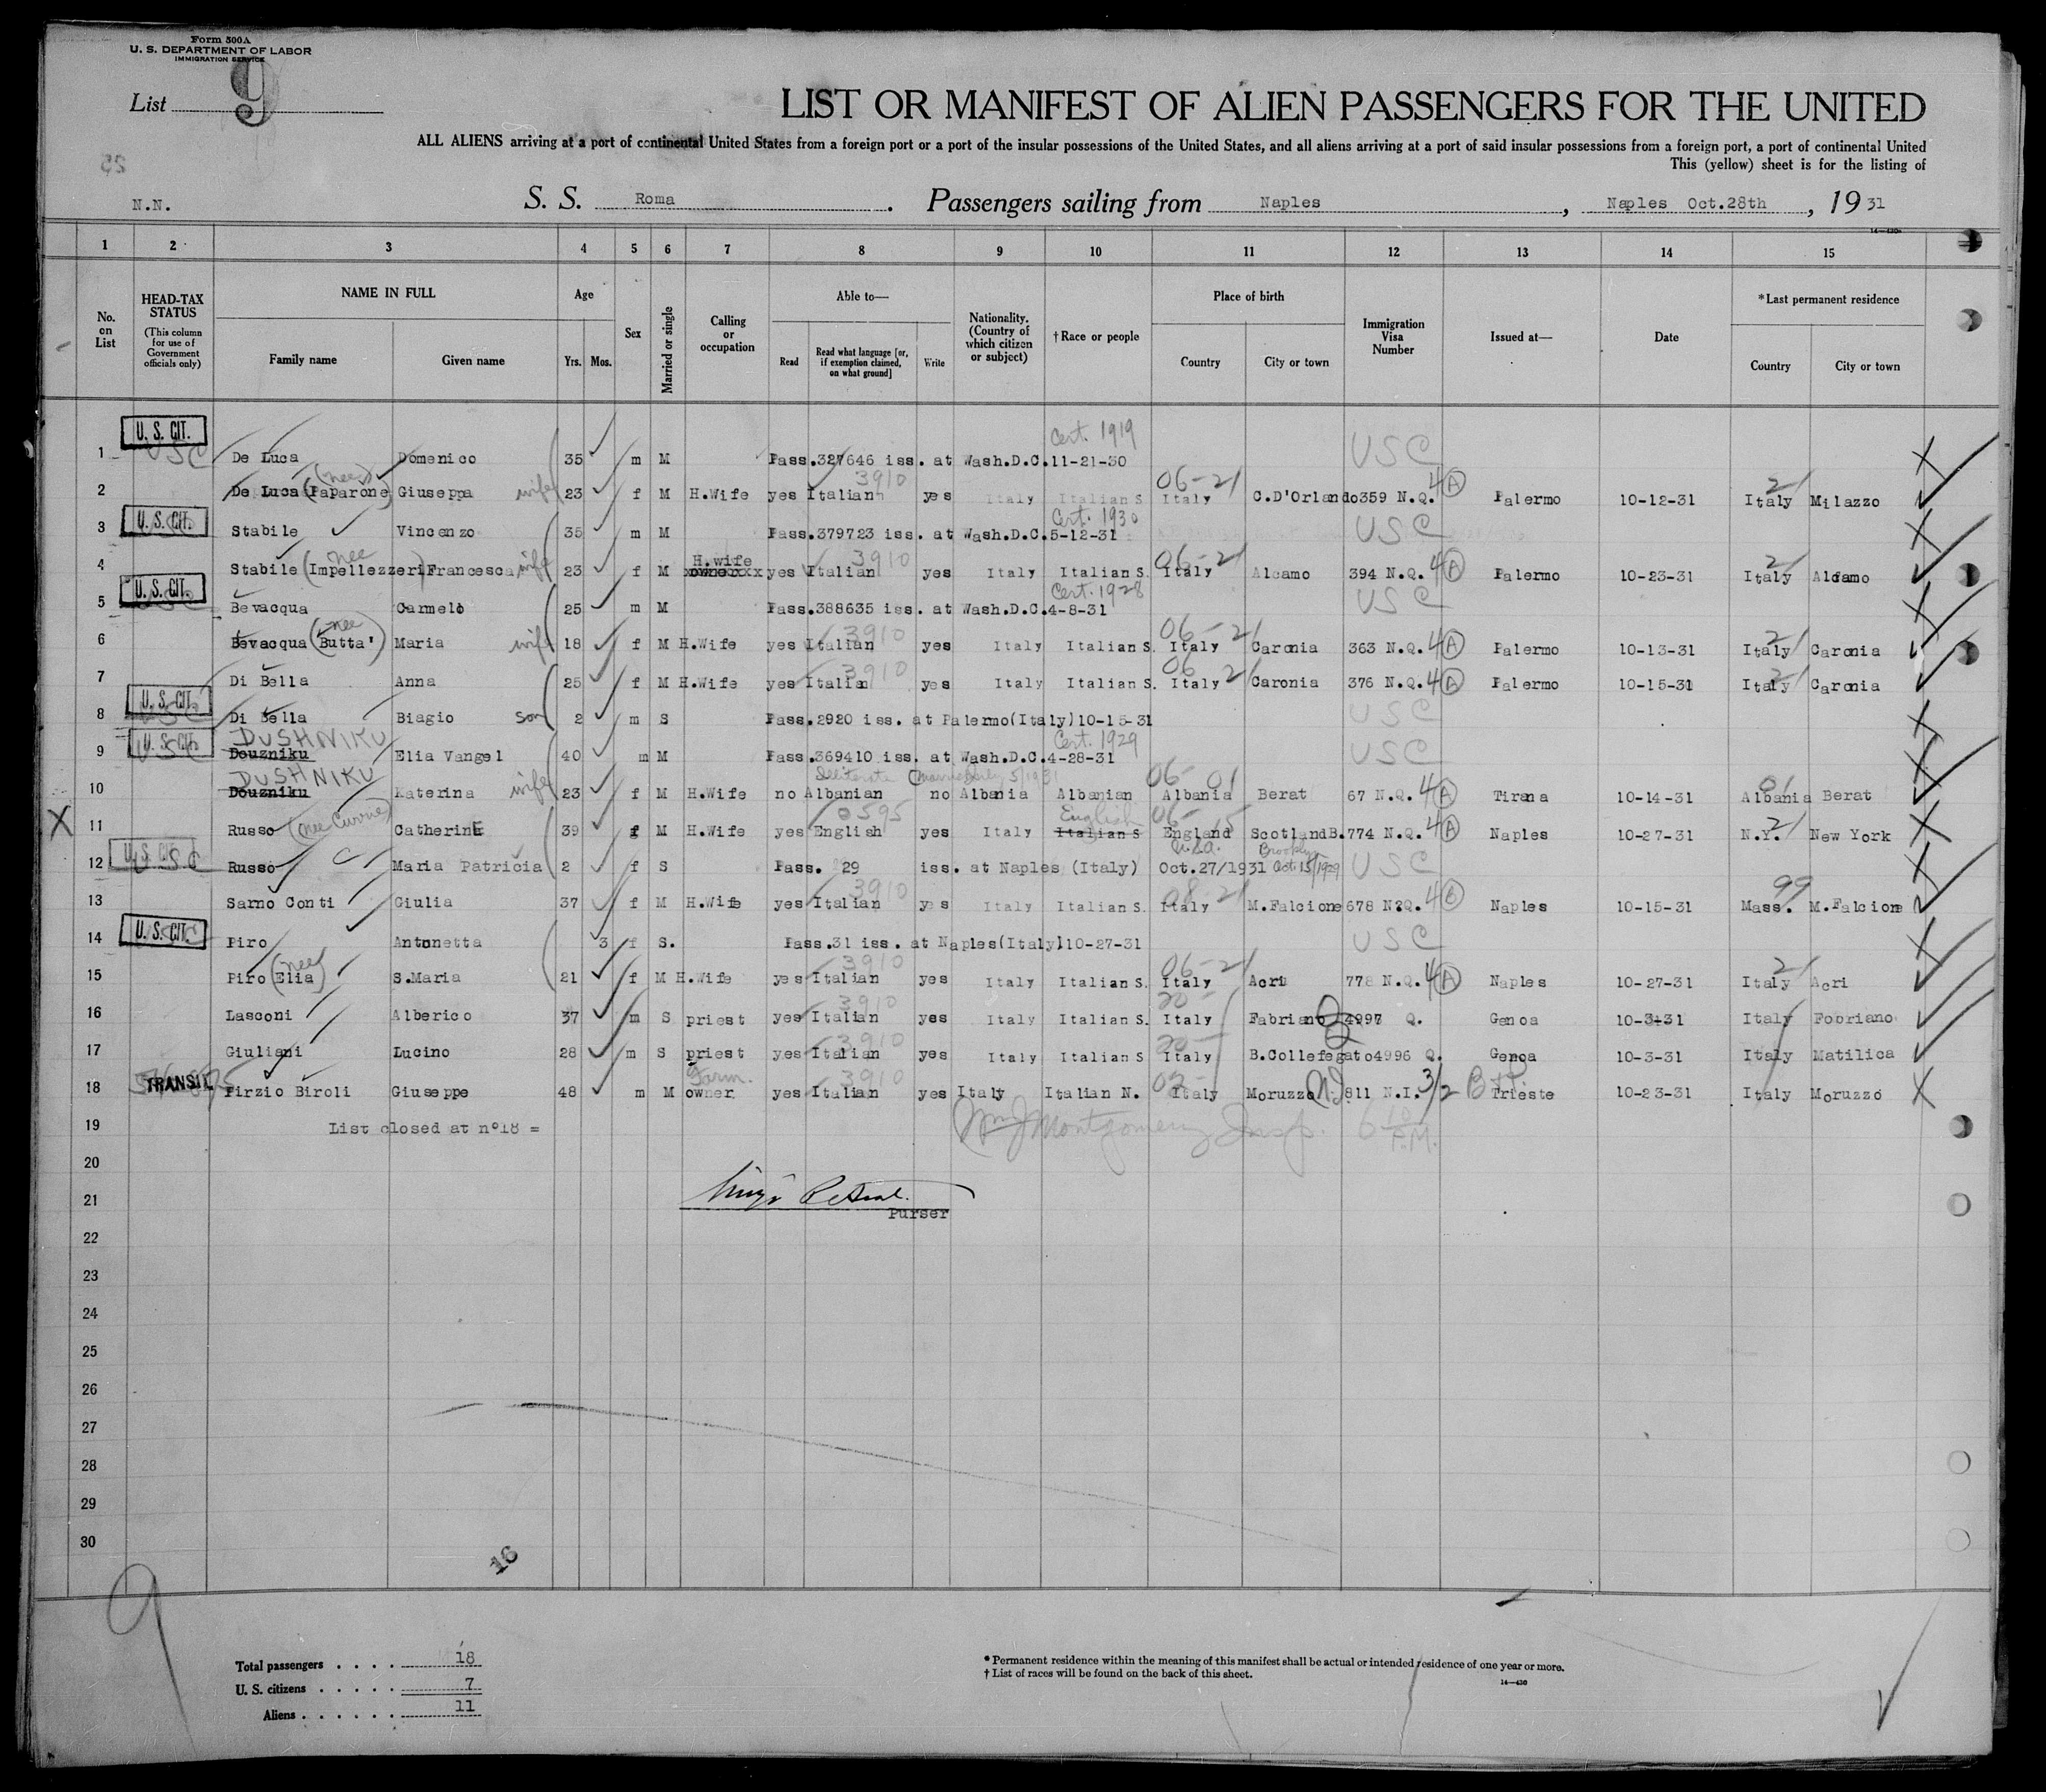 Form 500A
U. S. DEPARTMENT OF LABOR
IMMIGRATION SERVICE
List 9
LIST OR MANIFEST OF ALIEN PASSENGERS FOR THE UNITED
ALL ALIENS arriving at a port of continental United States from a foreign port or a port of the insular possessions of the United States, and all aliens arriving at a port of said insular possessions from a foreign port, a port of continental United
This (yellow) sheet is for the listing of
N.N. S. S. Roma. Passengers sailing from Naples, Naples Oct.28th, 1931
14—430
1 2 3 4 5 6 7 8 9 10 11 12 13 14 15
No. on List HEAD-TAX STATUS (This column for use of Government officials only) NAME IN FULL Family name Given name Age Yrs. Mos. Sex Married or single Calling or occupation Able to— Read Read what language [or, if exemption claimed, on what ground] Write Nationality. (Country of which citizen or subject) †Race or people Place of birth Country City or town Immigration Visa Number Issued at— Date *Last permanent residence Country City or town
Cert. 1919
1 U. S. CIT. USC De Luca Domenico 35 m M Pass.327646 iss. at Wash.D.C.11-21-30 USC
3910 06-21
2 De Luca (nee) (Paparone) Giuseppa wife 23 f M H.Wife yes Italian yes Italy Italian S Italy C.D'Orlando 359 N.Q. 4 A Palermo 10-12-31 Italy 21 Milazzo
Cert. 1930
3 U. S. CIT. Stabile Vincenzo 35 m M Pass.379723 iss. at Wash.D.C.5-12-31 USC
H.wife 3910 06-21
4 Stabile (nee Impellezzeri) Francesca wife 23 f M ownerxxx yes Italian yes Italy Italian S. Italy Alcamo 394 N.Q. 4 A Palermo 10-23-31 Italy 21 Alcamo
Cert. 1928
5 U. S. CIT. Bevacqua Carmelo 25 m M Pass.388635 iss. at Wash.D.C.4-8-31 USC
3910 06-21
6 Bevacqua (nee Butta') Maria wife 18 f M H.Wife yes Italian yes Italy Italian S. Italy Caronia 363 N.Q. 4 A Palermo 10-13-31 Italy 21 Caronia
3910 06 21
7 Di Bella Anna 25 f M H.Wife yes Italian yes Italy Italian S. Italy Caronia 376 N.Q. 4 A Palermo 10-15-31 Italy 21 Caronia
8 U. S. CIT. USC Di Bella Biagio son 2 m S Pass.2920 iss. at Palermo(Italy)10-15-31 USC
DUSHNIKU Cert. 1929
9 U. S. CIT. USC Douzniku Elia Vangel 40 m M Pass.369410 iss. at Wash.D.C.4-28-31 USC
DUSHNIKU 06- 01
10 Douzniku Katerina wife 23 f M H.Wife no Albanian no Albania Albanian Albania Berat 67 N.Q. 4 A Tirana 10-14-31 Albania 01 Berat
0595 English 06- 15
X 11 Russo (nee Currie) Catherine 39 f M H.Wife yes English yes Italy Italian S England ScotlandB. 774 N.Q. 4 A Naples 10-27-31 N.Y. 21 New York
U.S.A. Brooklyn
12 U. S. CIT. USC Russo Maria Patricia 2 f S Pass. 29 iss. at Naples (Italy) Oct.27/1931 Oct 15/1929 USC
3910 08-21
13 Sarno Conti Giulia 37 f M H.Wife yes Italian yes Italy Italian S. Italy M.Falcione 678 N?Q. 4 Naples 10-15-31 Mass. 99 M.Falcione
14 U. S. CIT. Piro Antonetta 3 f S. Pass.31 iss. at Naples(Italy)10-27-31 USC
3910 06-21
15 Piro (nee Elia) S.Maria 21 f M H.Wife yes Italian yes Italy Italian S. Italy Acri 778 N.Q. 4 A Naples 10-27-31 Italy 21 Acri
3910 20-
16 Lasconi Alberico 37 m S priest yes Italian yes Italy Italian S. Italy Fabriano 4997 Q. Genoa 10-3-31 Italy Fobriano
3910 20-
17 Giuliani Lucino 28 m S priest yes Italian yes Italy Italian S Italy B.Collefegato 4996 Q. Genoa 10-3-31 Italy Matilica
Farm. 3910
18 TRANSIT Pirzio Biroli Giuseppe 48 m M owner yes Italian yes Italy Italian N. Italy Moruzzo 811 N.I. 3/2 Trieste 10-23-31 Italy Moruzzo
19 List closed at n°18 = Montgomery Insp. 6 10 P.M.
20
21
Purser
22
23
24
25
26
27
28
29
30
16
9
Total passengers . . . . 18
U. S. citizens . . . . . 7
Aliens . . . . . . 11
* Permanent residence within the meaning of this manifest shall be actual or intended residence of one year or more.
† List of races will be found on the back of this sheet.
14—430